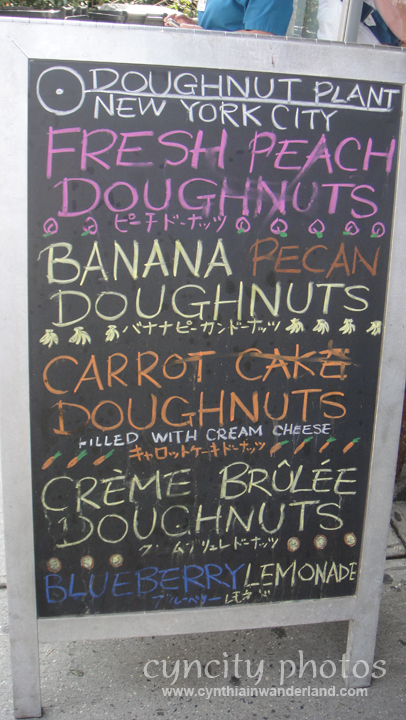 DOUGHNUT PLANT
NEW YORK CITY
FRESH PEACH
DOUGHNUTS
ピーチドーナッツ
BANANA PECAN
DOUGHNUTS
バナナピーカンドーナッツ
CARROT CAKE
DOUGHNUTS
FILLED WITH CREAM CHEESE
キャロットケーキドーナッツ
CRÈME BRÛLÉE
DOUGHNUTS
クームブリュレドーナッツ
BLUEBERRY LEMONADE
ブルーベリー レモネード
cyncity photos
www.cynthiainwanderland.com